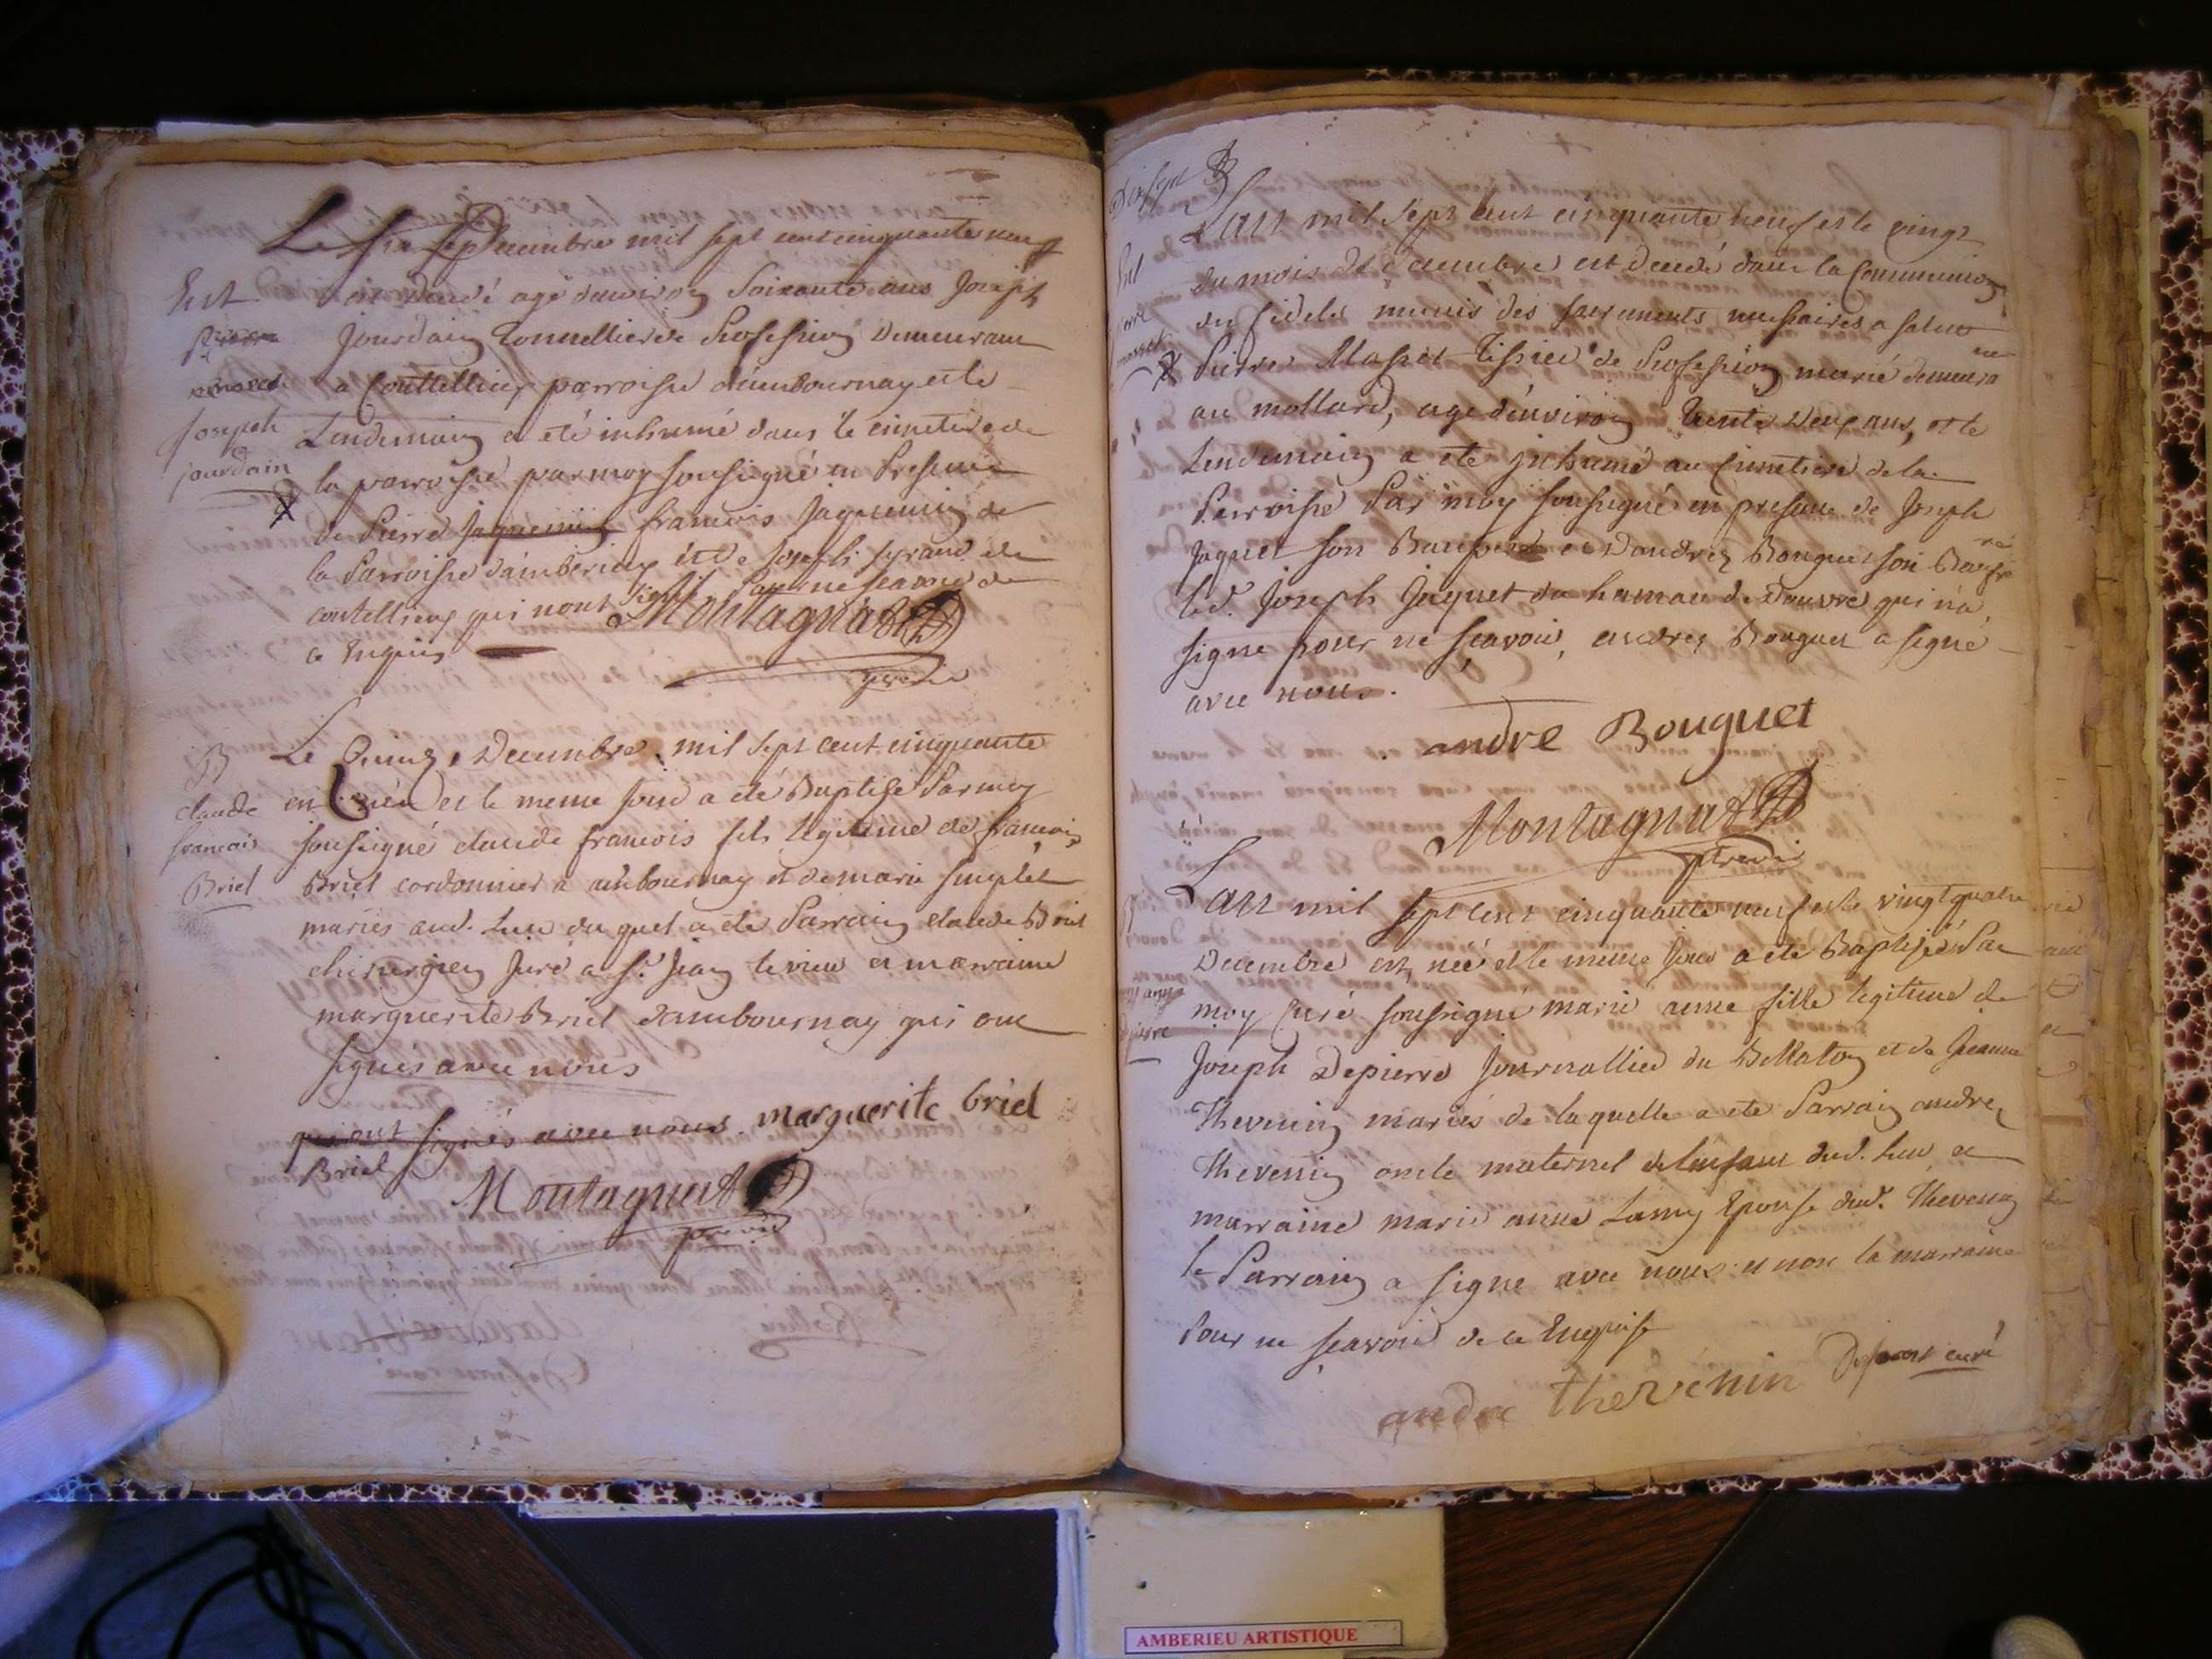 Le six Decembre mil sept cent cinquante neuf
Ent
est decedé agé denviron Soixante ans Joseph
Joseph
jourdain
Jourdain Tonnellier de Profession Demeurant
a Couttellieu parroisse d'ambournay et le
Lendemain a eté inhumé dans le cimetiere de
la parroisse par moy sousigné en Presence
de Pierre Jaquemin francois Jaquemin de
la Parroisse d'amberieu et de Joseph de
coutellieux qui nont signé Pour ne scavoir de
ce Enquis
Montagnat
B
claude
francois
Briel
Le Quinze Decembre mil sept cent cinquante
en né et le meme jour a eté Baptisé Par moy
sousigné claude francois fils legitime de francois
Briel cordonnier a ambournay et de marie
mariés aud. Lieu du quel a eté Parrain claude Briel
chirurgien Juré a St. Jean le vieux et marraine
marguerite Briel dambournay qui ont
signés avec nous
qui ont signés avec nous marguerite briel
Briel
Montagnat
L'an mil sept cent cinquante neuf et le vingt
du mois de decembre est decedé dans la Communion
des fideles munis des sacrements nessaires a salut
Pierre Masset Tissier de Profession marié demeurant
au mollard, agé d'environ trente neuf ans, et le
Lendemain a eté inhumé au Cimetiere de la
Parroisse Par moy sousigné en presence de Joseph
Jaquet son Beaupere et Dandrez Bouguet son Beaufrere
led. Joseph Jaquet du hameau de Douvre qui n'a
signe pour ne scavoir, andrez Bouguet a signé
avec nous.
andre Bouguet
Montagnat
L'an mil sept cent cinquante neuf et le vingt quatre
Decembre est née et le meme jour a eté Baptisée Par
moy Curé sousigné marie anne fille legitime de
Joseph Depierre Journallier du Bellaton et de Jeanne
Thevenin mariés de laquelle a eté Parrain andrez
Thevenin oncle maternel de lenfant dud. Lieu et
marraine marie anne Lamy Epouse dud. Thevenin
le Parrain a signe avec nous et non la marraine
Pour ne scavoir de ce Enquise
andre thevenin Curé
AMBERIEU ARTISTIQUE